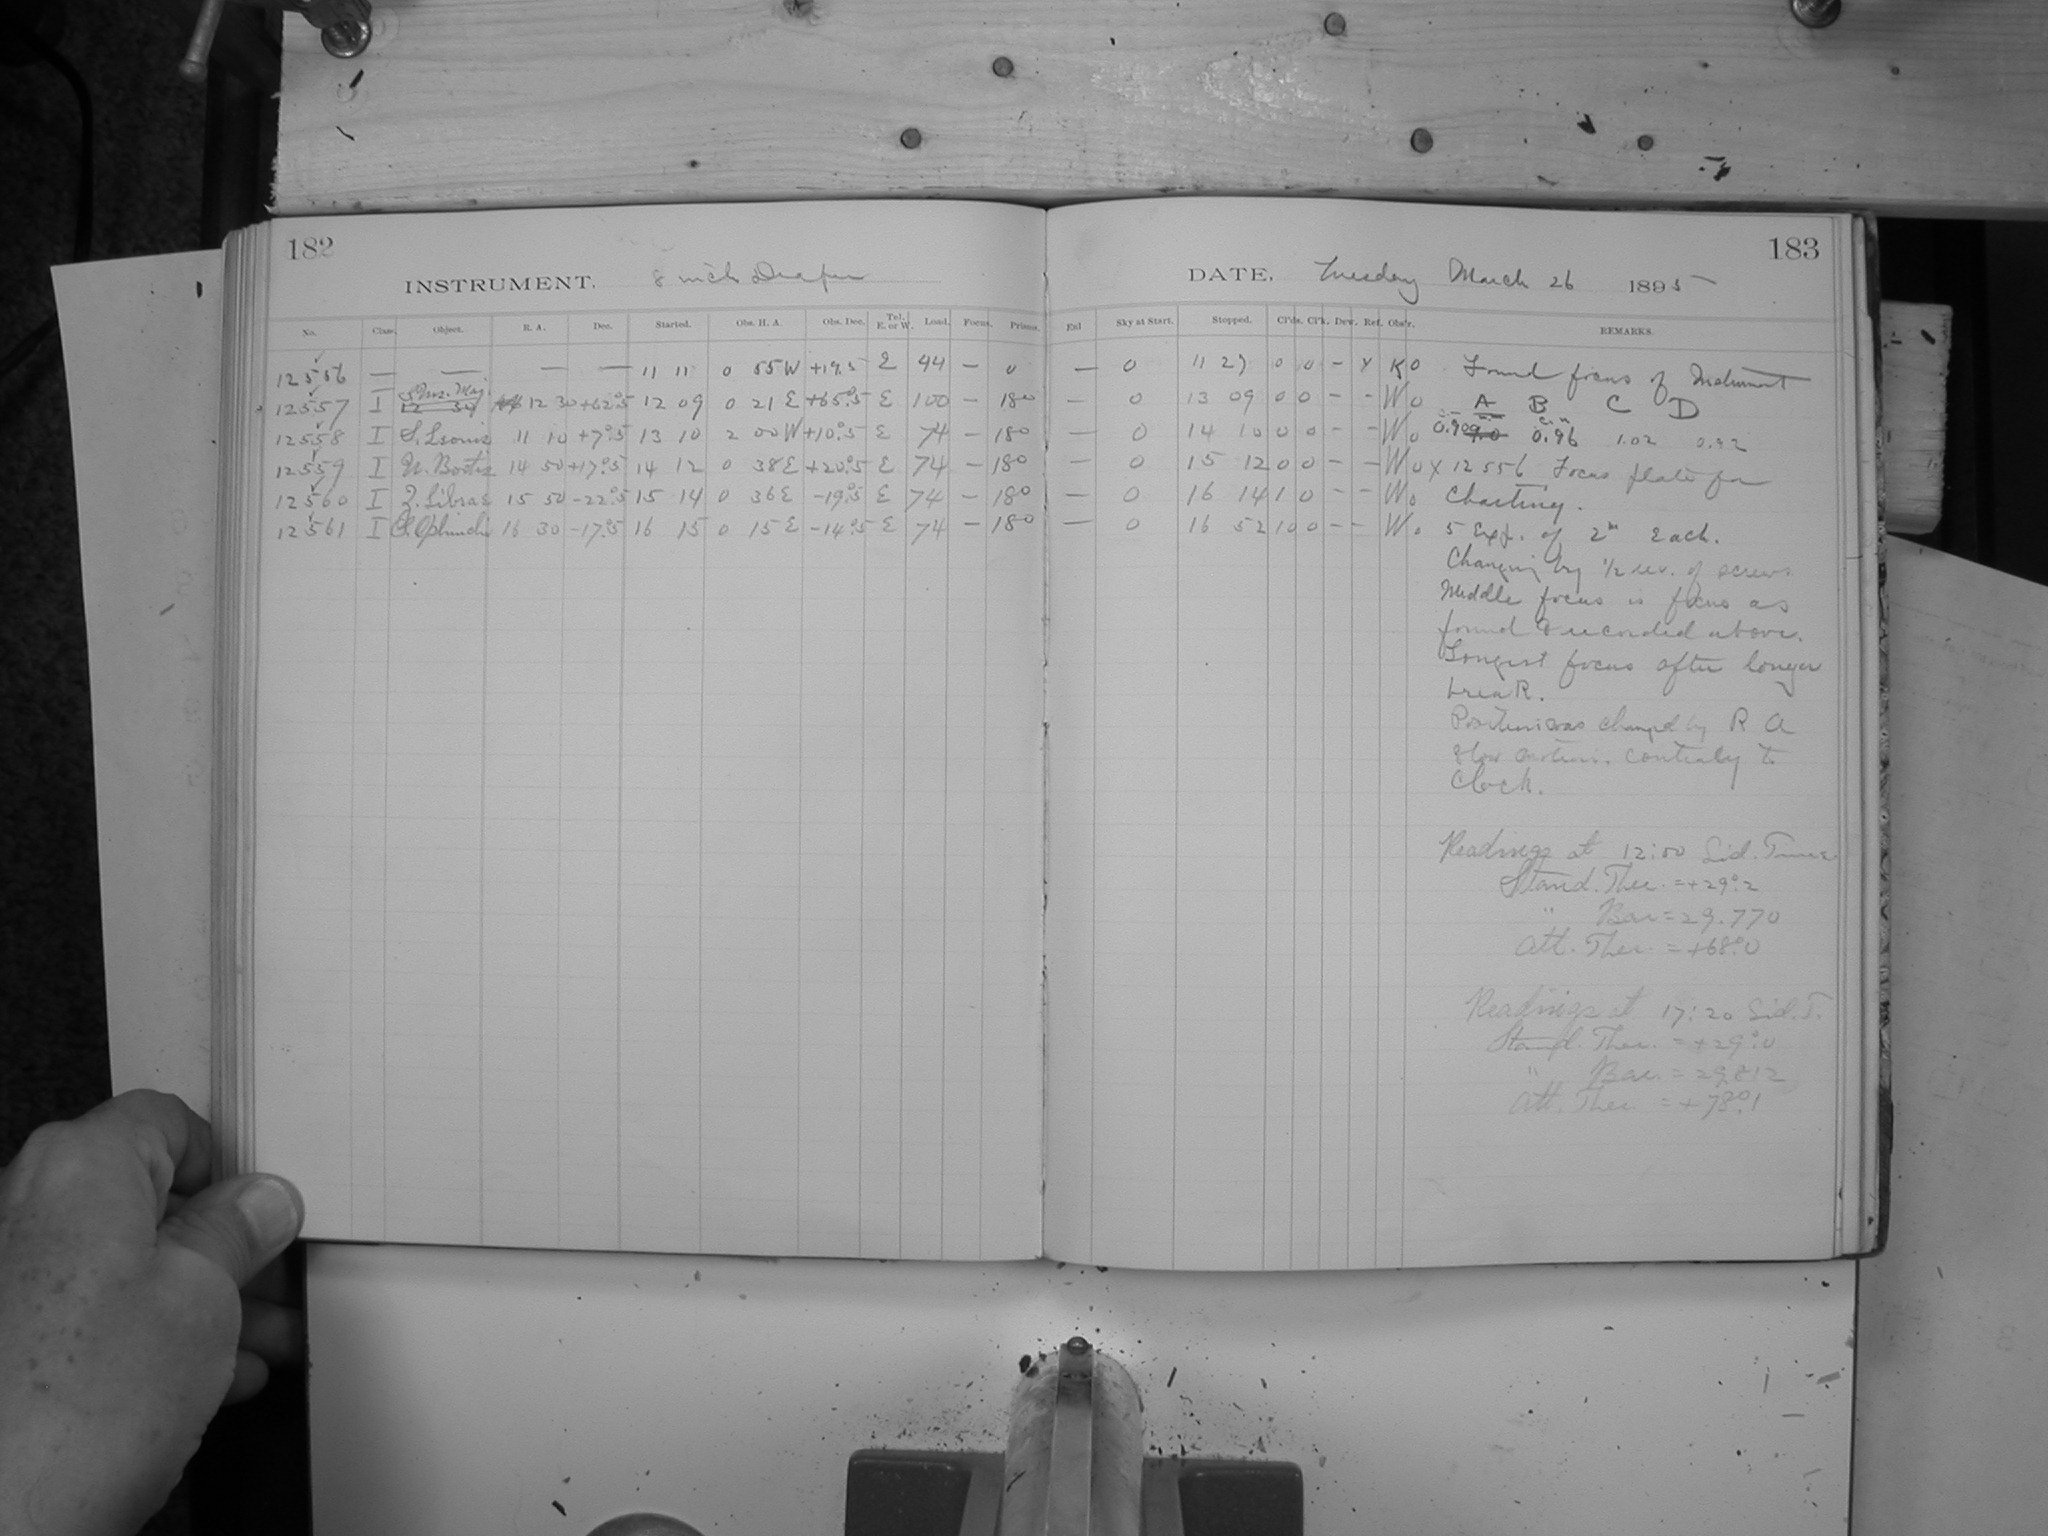 182
INSTRUMENT. 8 inch Draper
No. Class. Object. R. A. Dec. Started. Obs. H. A. Obs. Dec. Tel. E. or W. Load. Focus. Prisms.
12556 — — — — 11 11 0 55W +19.5 E 44 — 0
12557 I 12 30 12 30 +62°.5 12 09 0 21 E +65°.5 E 100 — 180
12558 I S. Leonis 11 10 +7°.5 13 10 2 00W +10°.5 E 74 — 180
12559 I 14 50 +17°.5 14 12 0 38E +20°.5 E 74 — 180
12560 I Librae 15 50 -22°.5 15 14 0 36E -19°.5 E 74 — 180
12561 I Ophiuchi 16 30 -17°.5 16 15 0 15 E -14°.5 E 74 — 180
183
DATE. Tuesday March 26 1895
Enl Sky at Start. Stopped. Cl'ds. Cl'k. Dew. Ref. Obs'r. REMARKS.
— 0 11 27 0 0 — X K0 Found focus of Instrument
— 0 13 09 0 0 - - Wo A B C D
— 0 14 10 0 0 - - Wo 0.90 0.96 1.02 0.92
— 0 15 12 0 0 - - Wo X 12556 Focus plate for
— 0 16 14 1 0 - - Wo Charting.
— 0 16 52 10 0 - - Wo 5 Exp. of 2m Each.
Changing by 1/2 rev. of screw.
Middle focus is focus as
found & recorded above.
Longest focus after longer
break.
Position was changed by R A
slow motion. contrary to
Clock.
Readings at 12:00 Sid. Time
Stand. Ther. = +29°.2
" Bar = 29.770
Att. Ther. = +68°.0
Readings at 17:20 Sid. T.
Stand. Ther. = +29°.0
" Bar. = 29.812
Att. Ther. = +78°.1